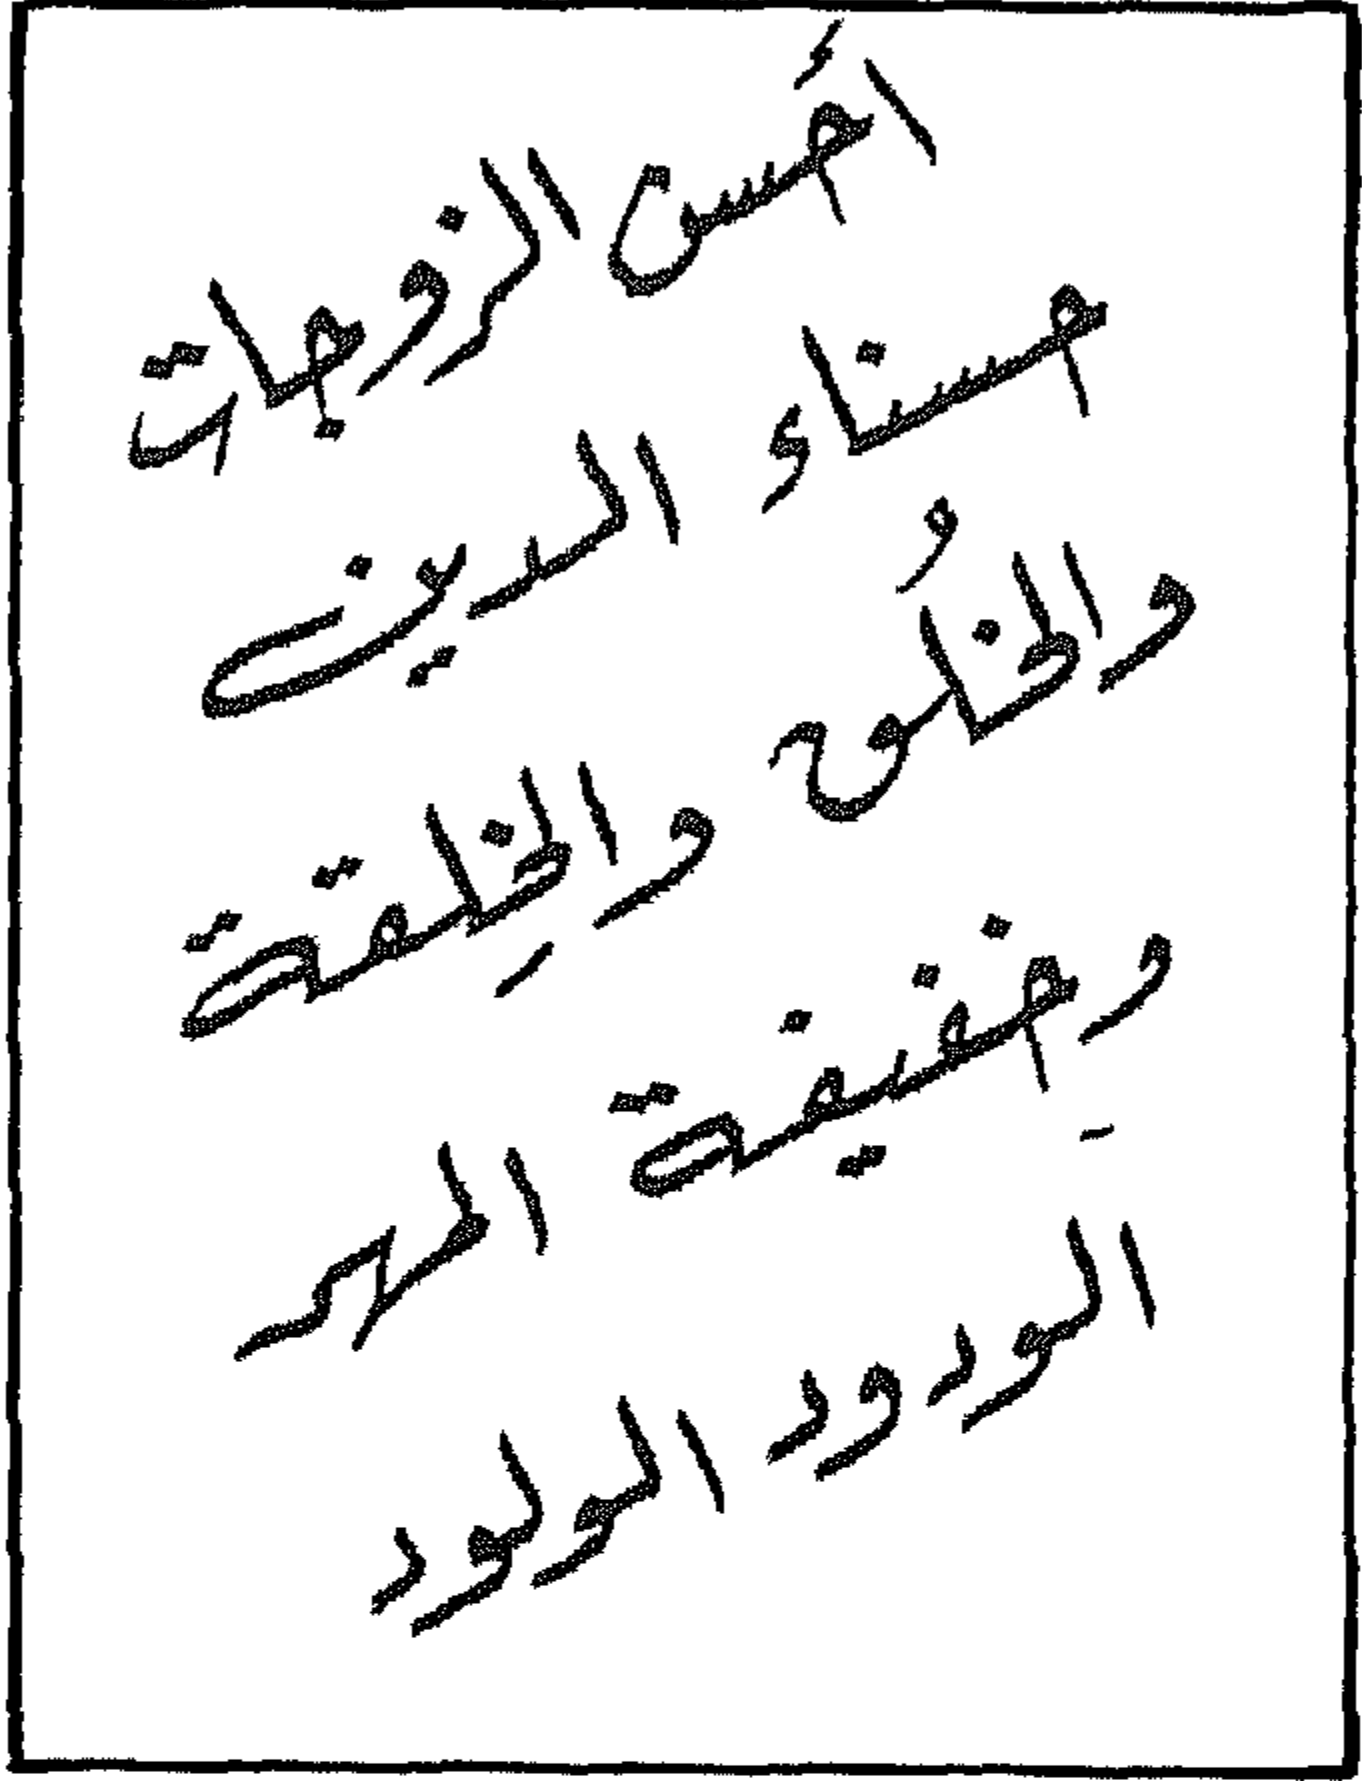 أحسن الزوجات
حسناء الدين
والخُلق والخِلقة
وخفيفة المهر
الودود الولود